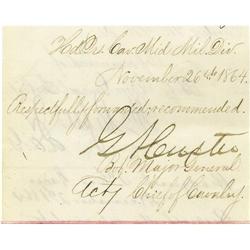 Hd. Qrs. Cav. Mid. Mil. Div.
November 26th 1864.
Respectfully forwarded, recommended.
G A Custer
Bvt. Major General
Actg Chief of Cavalry